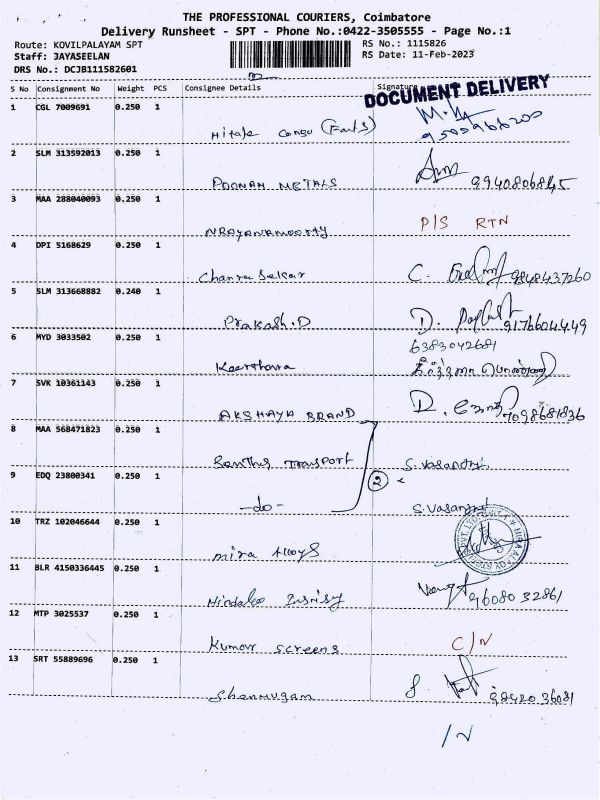 THE PROFESSIONAL COURIERS, Coimbatore
Delivery Runsheet - SPT - Phone No.:0422-3505555 - Page No.:1
Route: KOVILPALAYAM SPT
RS No.: 1115826
Staff: JAYASEELAN
RS Date: 11-Feb-2023
DRS No.: DCJB111582601
S No Consignment No Weight PCS Consignee Details Signature
DOCUMENT DELIVERY
1 CGL 7009691 0.250 1
2 SLM 313592013 0.250 1
POONAM METALS 9940806845
3 MAA 288040093 0.250 1
P/S RTN
4 DPI 5168629 0.250 1
C. 9848437260
5 SLM 313668882 0.240 1
Prakash.D D. 9176604449
6 MYD 3033502 0.250 1
6383042681
Keerthana
7 SVK 10361143 0.250 1
AKSHAYA BRAND D. 7098681836
8 MAA 568471823 0.250 1
Transport S.Vasanthi
9 EDQ 23800341 0.250 1
2
-do- S.Vasanthi
10 TRZ 102046644 0.250 1
mira Alloys
11 BLR 4150336445 0.250 1
9608032861
12 MTP 3025537 0.250 1
Kumar screens C/N
13 SRT 55889696 0.250 1
Shanmugam 9842036081
/N